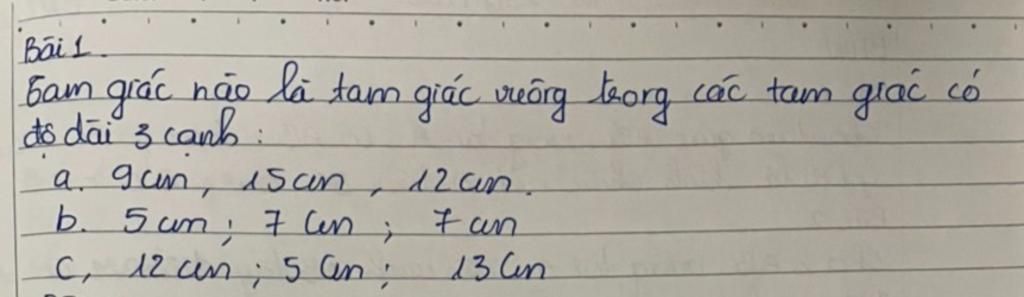 Bài 1.
Tam giác nào là tam giác vuông trong các tam giác có
độ dài 3 cạnh :
a. 9cm, 15cm, 12cm.
b. 5cm; 7cm; 7cm
c, 12cm; 5cm; 13cm